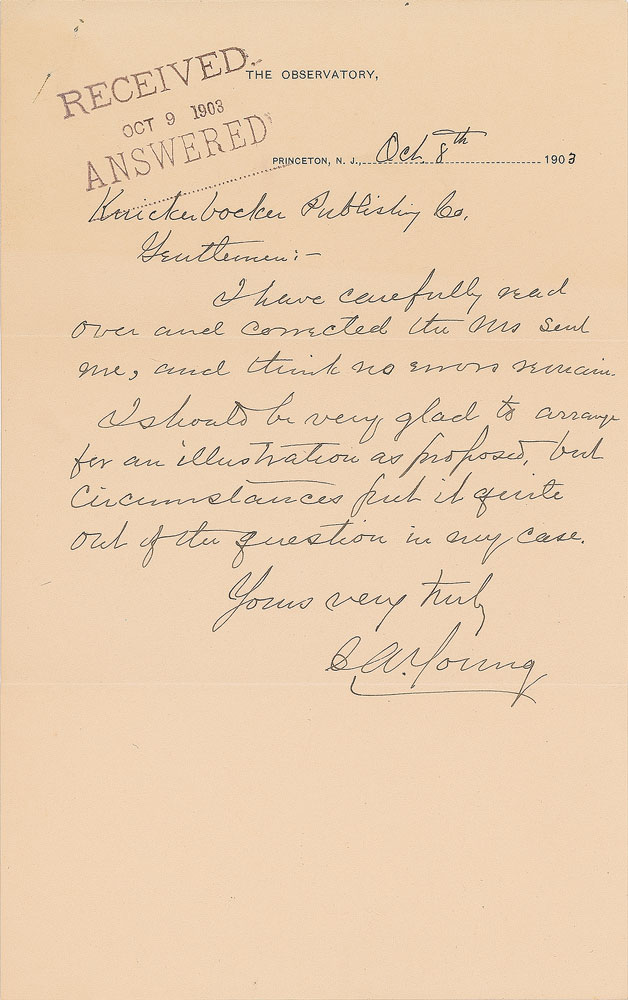 RECEIVED.
OCT 9 1903
ANSWERED
THE OBSERVATORY,
PRINCETON, N. J., Oct. 8th 1903
Knickerbocker Publishing Co.
Gentlemen:-
I have carefully read
over and corrected the Ms sent
me, and think no errors remain.
I should be very glad to arrange
for an illustration as proposed, but
circumstances put it quite
out of the question in my case.
Yours very truly
C. A. Young